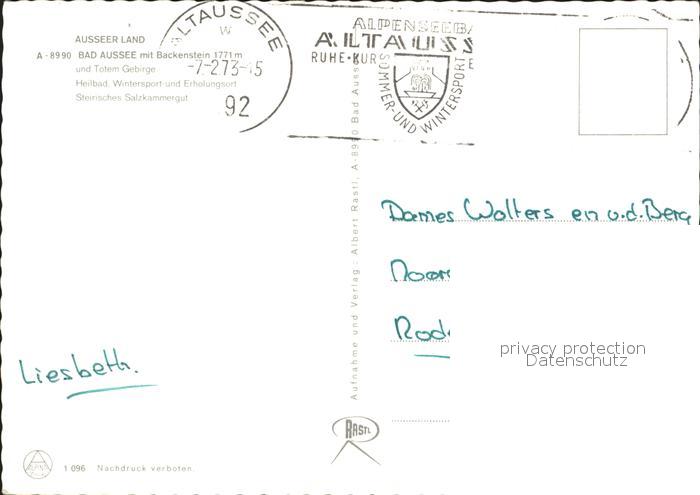 AUSSEER LAND
A - 8990 BAD AUSSEE mit Backenstein 1771 m
und Totem Gebirge
Heilbad, Wintersport- und Erholungsort
Steirisches Salzkammergut
ALTAUSSEE
W
-7-2.73-15
92
ALPENSEEBA
ALTAUSS
RUHE·KURS
SOMMER-UND WINTERSPORT
Aufnahme und Verlag: Albert Rastl, A-8990 Bad Auss
Dames Wolters en v.d. Berg
Noor
Rod
privacy protection
Datenschutz
Liesbeth.
RASTL
1 096 Nachdruck verboten.